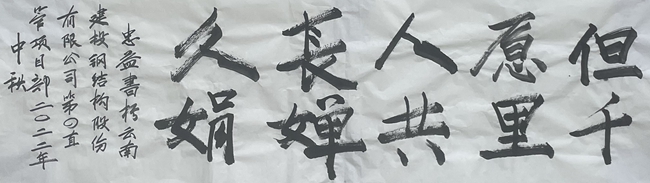 但愿人長久
千里共嬋娟
忠益書於云南
建投钢结构股份
有限公司第〇直
管项目部二〇二二年
中秋